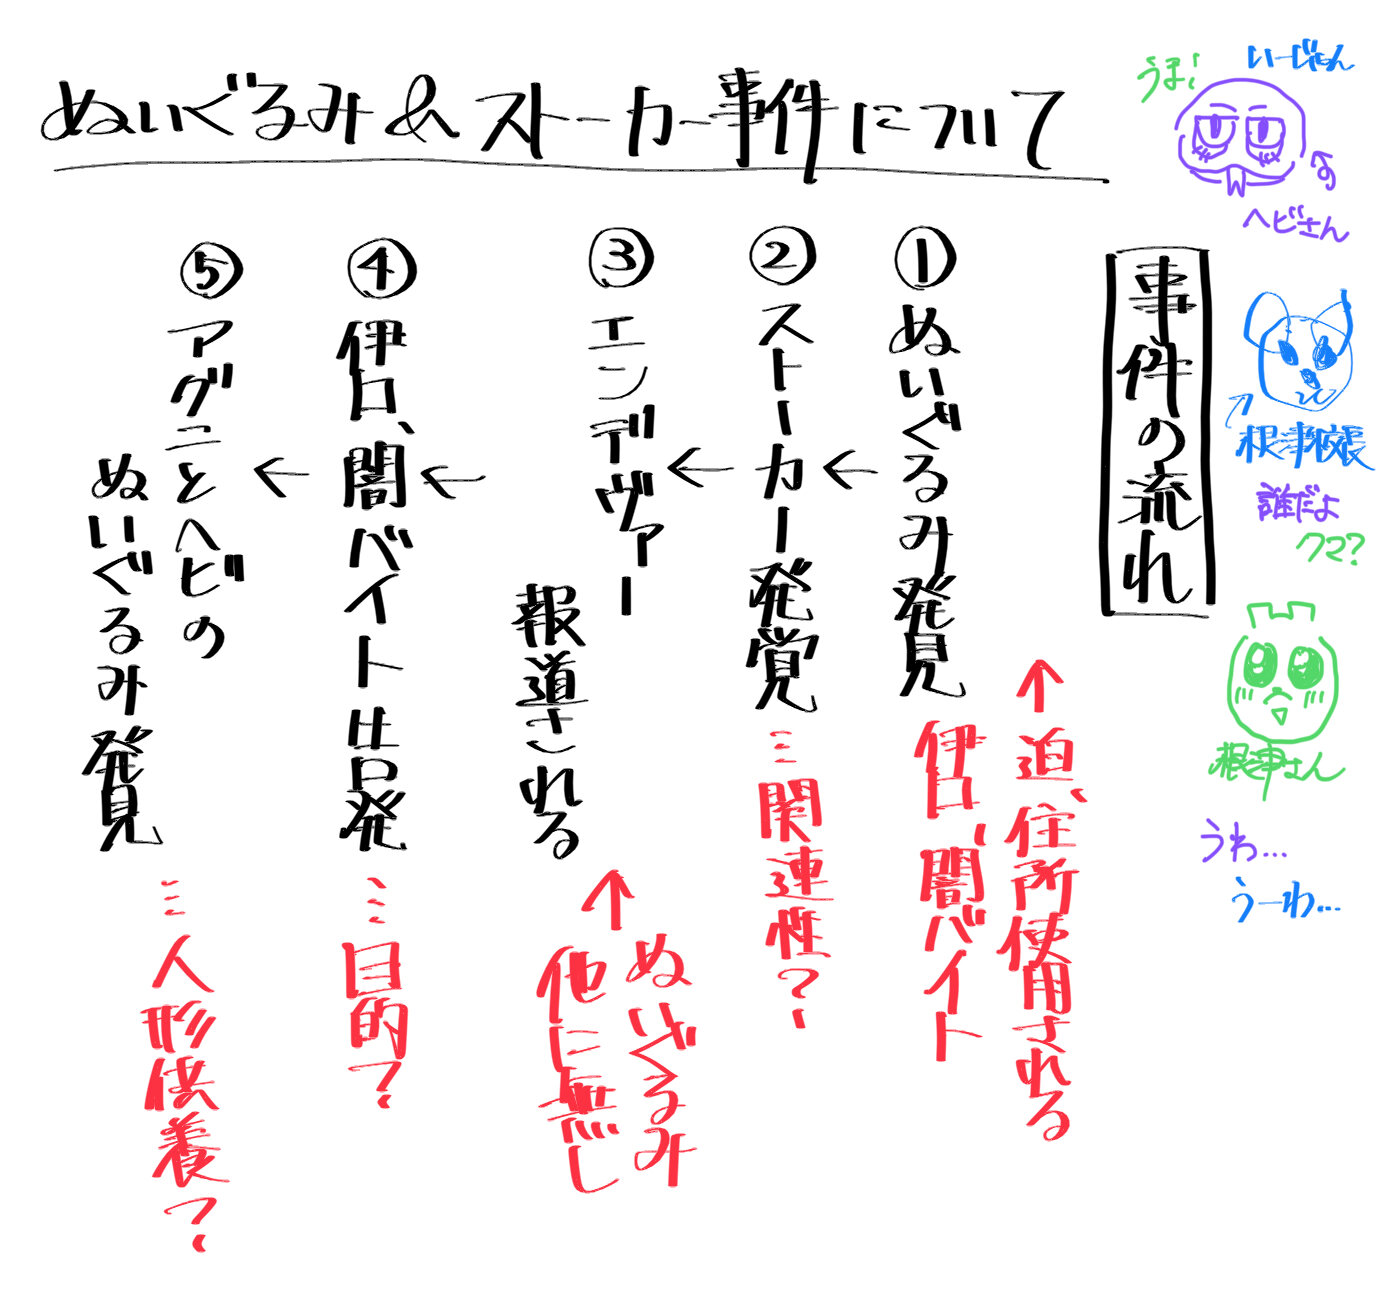 ぬいぐるみ&ストーカー事件について
事件の流れ
①ぬいぐるみ発見
↑迫、住所使用される
伊口、闇バイト
②ストーカー発覚
…関連性?
③エンデヴァー
報道される
↑ぬいぐるみ
他に無し
④伊口、闇バイト告発
…目的?
⑤アグニとヘビの
ぬいぐるみ発見
…人形供養?
うま!
いーじゃん
ヘビさん
根津校長
誰だよ
クマ?
根津さん
うわ…
うーわ…